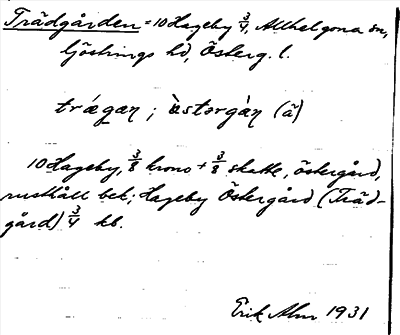 Trädgården = 10 Hageby 3/4, Allhelgona sn,
Göstrings hd, Österg. l.
trǽgaɳ; ùstərgàɳ (ä)
10 Hageby, 3/8 krono + 3/8 skatte, östergård,
rusthåll bek; Hageby Östergård (Träd-
gård) 3/4 kb.
Erik Alm 1931